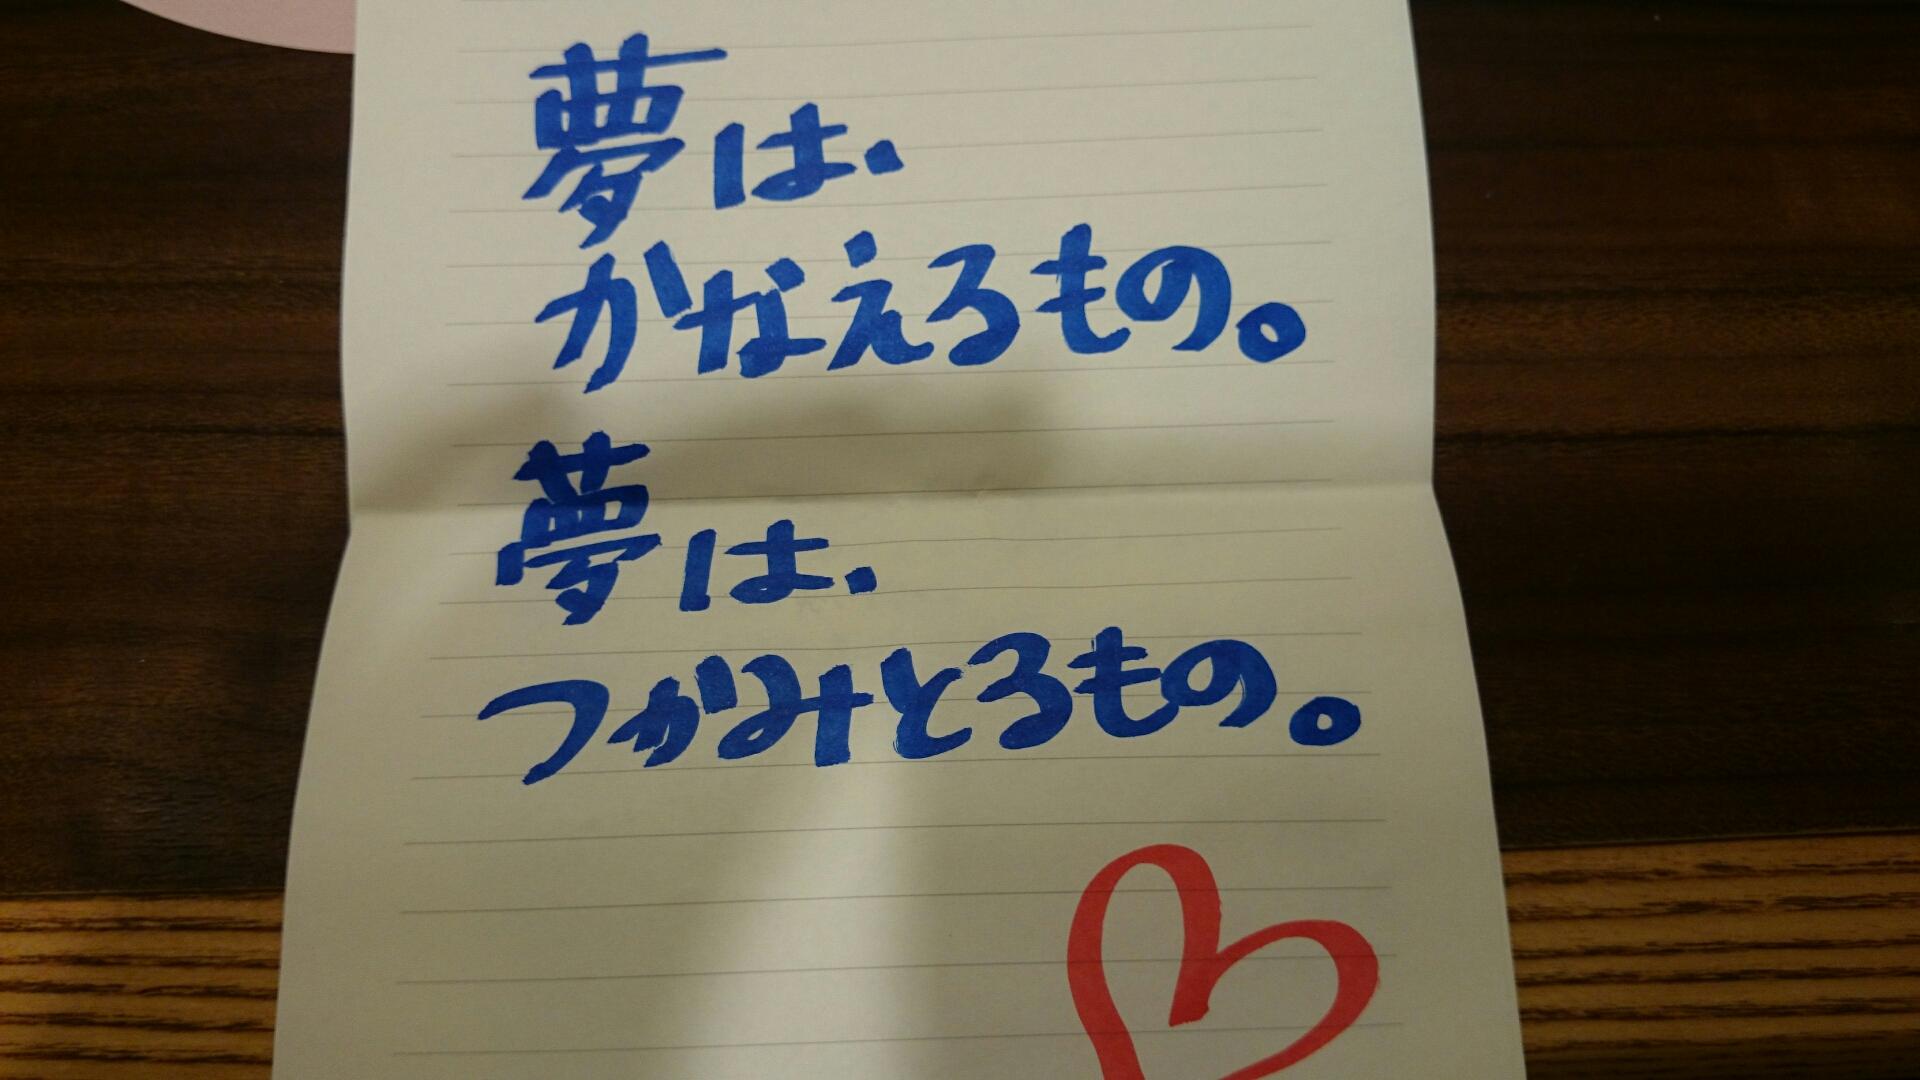 夢は、
かなえるもの。
夢は、
つかみとるもの。